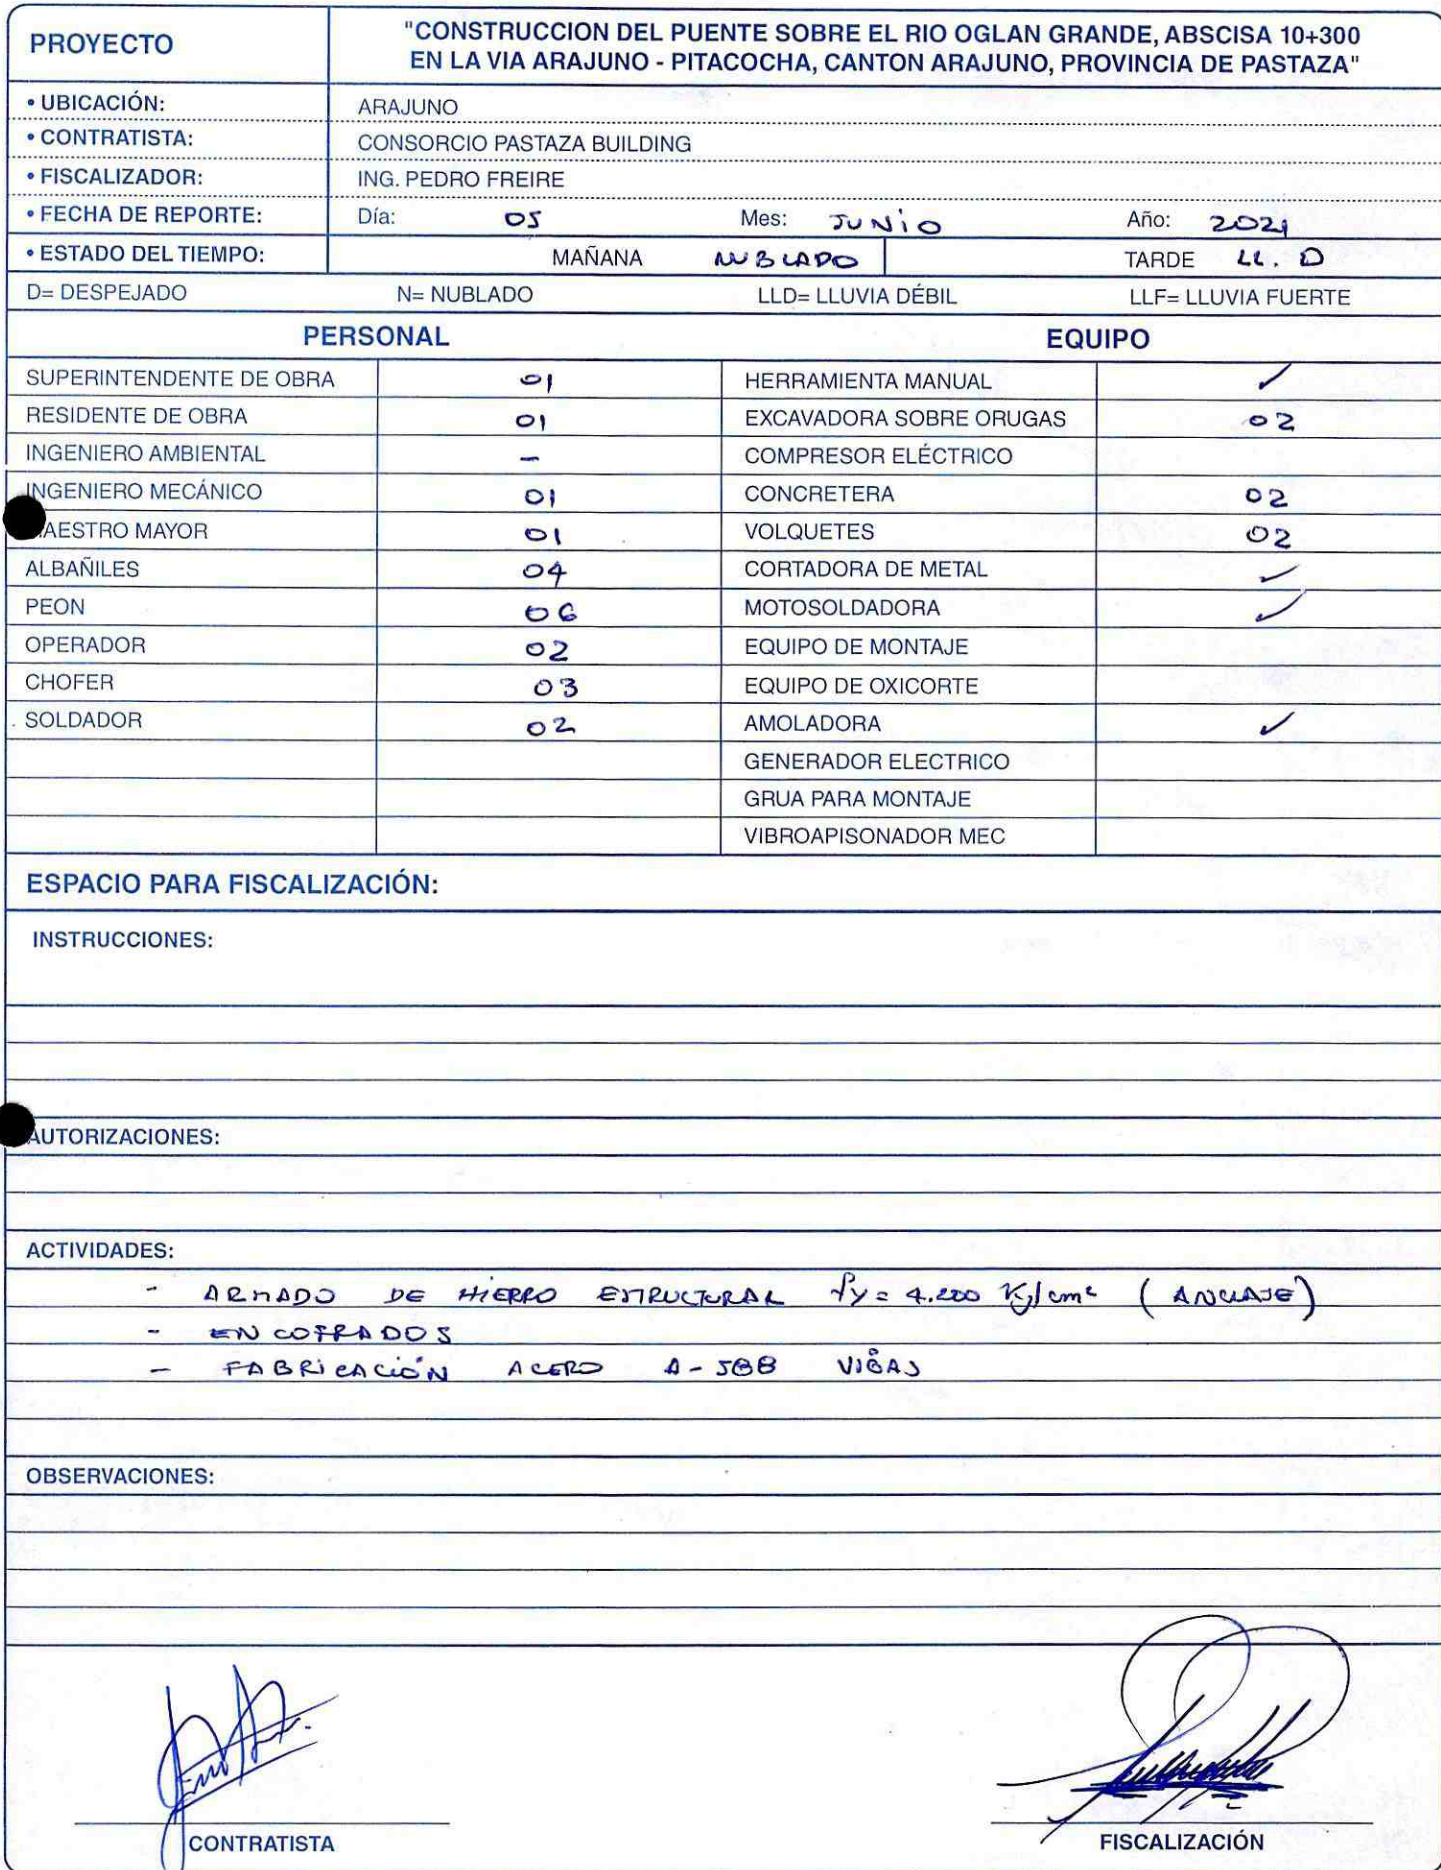 PROYECTO
"CONSTRUCCION DEL PUENTE SOBRE EL RIO OGLAN GRANDE, ABSCISA 10+300
EN LA VIA ARAJUNO - PITACOCHA, CANTON ARAJUNO, PROVINCIA DE PASTAZA"
• UBICACIÓN: ARAJUNO
• CONTRATISTA: CONSORCIO PASTAZA BUILDING
• FISCALIZADOR: ING. PEDRO FREIRE
• FECHA DE REPORTE: Día: 05 Mes: JUNIO Año: 2021
• ESTADO DEL TIEMPO: MAÑANA NUBLADO TARDE LL. D
D= DESPEJADO N= NUBLADO LLD= LLUVIA DÉBIL LLF= LLUVIA FUERTE
PERSONAL EQUIPO
SUPERINTENDENTE DE OBRA 01 HERRAMIENTA MANUAL ✓
RESIDENTE DE OBRA 01 EXCAVADORA SOBRE ORUGAS 02
INGENIERO AMBIENTAL - COMPRESOR ELÉCTRICO
INGENIERO MECÁNICO 01 CONCRETERA 02
MAESTRO MAYOR 01 VOLQUETES 02
ALBAÑILES 04 CORTADORA DE METAL ✓
PEON 06 MOTOSOLDADORA ✓
OPERADOR 02 EQUIPO DE MONTAJE
CHOFER 03 EQUIPO DE OXICORTE
SOLDADOR 02 AMOLADORA ✓
GENERADOR ELECTRICO
GRUA PARA MONTAJE
VIBROAPISONADOR MEC
ESPACIO PARA FISCALIZACIÓN:
INSTRUCCIONES:
AUTORIZACIONES:
ACTIVIDADES:
- ARMADO DE HIERRO ESTRUCTURAL fy= 4.200 Kg/cm² (ANCLAJE)
- ENCOFRADOS
- FABRICACIÓN ACERO A-588 VIGAS
OBSERVACIONES:
CONTRATISTA FISCALIZACIÓN